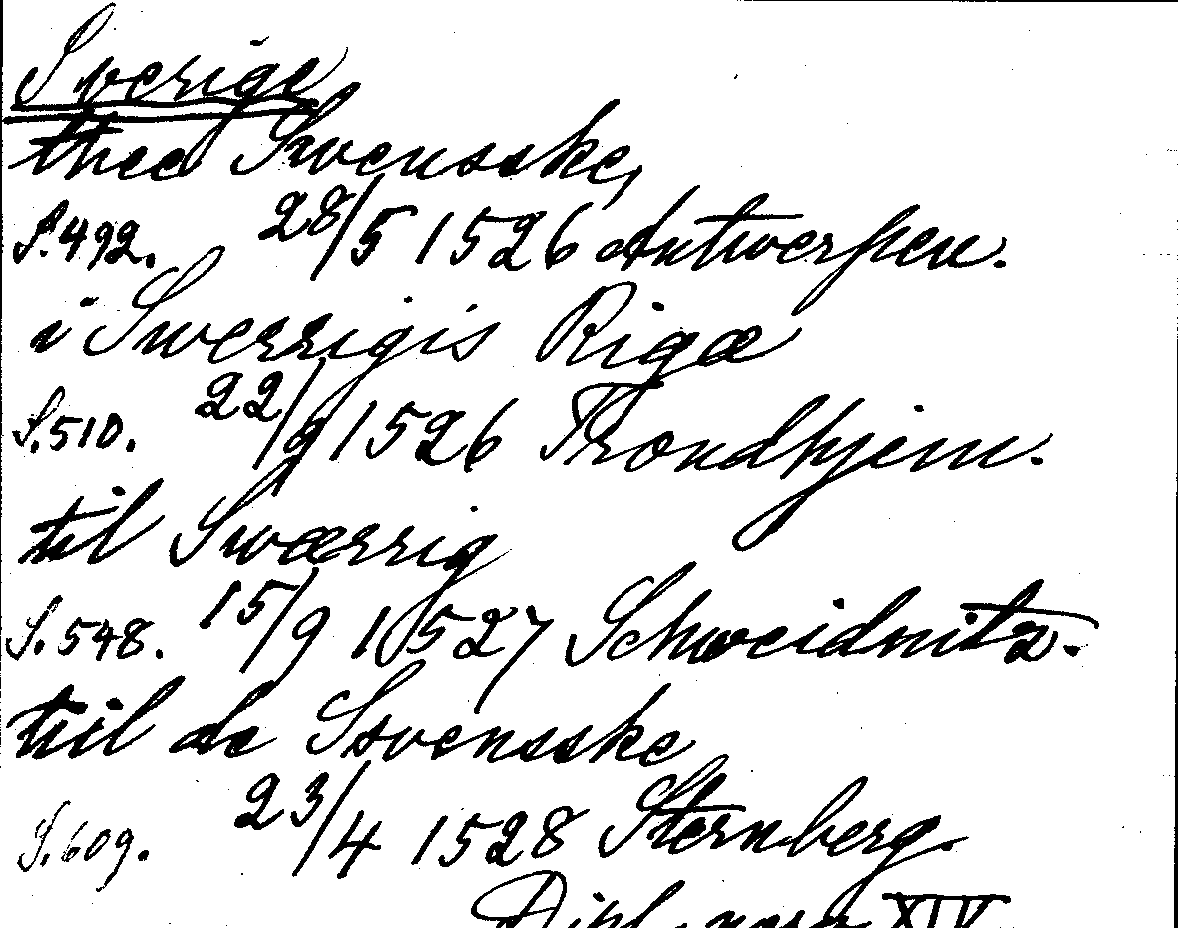 Sverige
thee Swensske,
S.492. 28/5 1526 Antwerpen.
i Swerrigis Rigæ
S.510. 22/9 1526 Trondhjem.
til Swærrig
S.548. 15/9 1527 Schweidnitz.
tiil de Svensske
S.609. 23/4 1528 Sternberg.
Dipl. norv. XIV